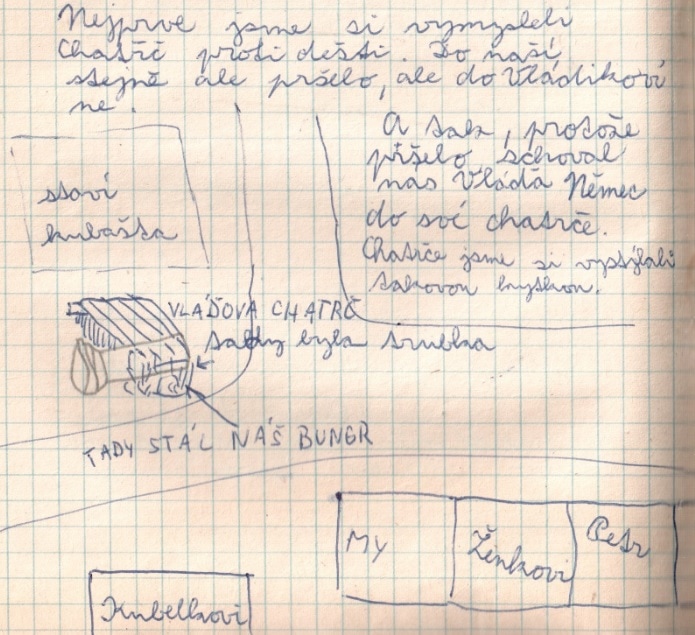 Nejprve jsme si vymysleli
Chatrč proti dešti. Do naší
stejně ale pršelo, ale do Vládikoví
ne.
A tak, protože
pršelo, schoval
nás Vláďa Němec
do své chatrče.
Chatrče jsme si vystýlali
takovou
stoví
kubaška
VLÁĎOVA CHATRČ
tady byla trubka
TADY STÁL NÁŠ BUNGR
My
Ženkovi
Petr
Kubelkovi